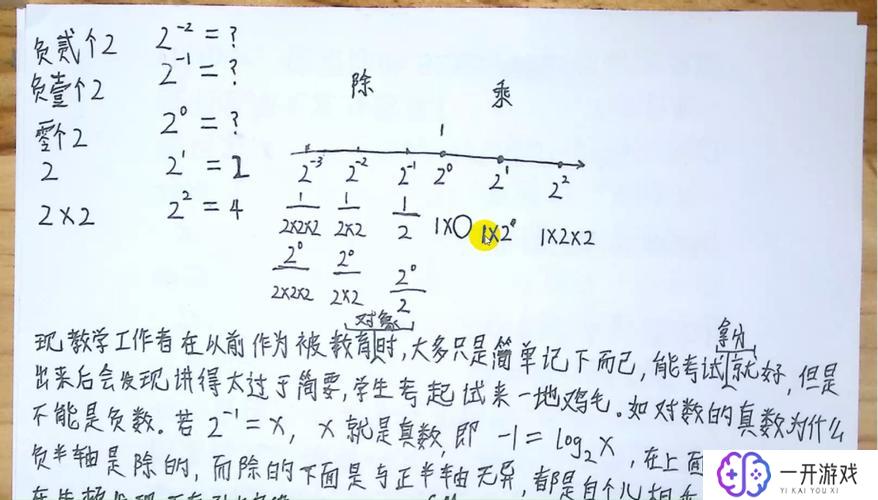 负贰个2 2⁻² = ?
负壹个2 2⁻¹ = ?
零个2 2⁰ = ?
2 2¹ = 2
2×2 2² = 4
除 乘
1
2⁻³ 2⁻² 2⁻¹ 2⁰ 2¹ 2²
1/(2×2×2) 1/(2×2) 1/2 1×○ 1×2 1×2×2
2⁰/(2×2×2) 2⁰/(2×2) 2⁰/2
对象 拿分
现教学工作者在以前作为被教育时,大多只是简单记下而已,能考试就好,但是
出来后会发现讲得太过于简要,学生考起试来一地鸡毛。如对数的真数为什么
不能是负数。若 2⁻¹=x, x就是真数,即 -1=log₂x ,在上面
负半轴是除的,而除的下面是与正半轴无异,都是自个儿相乘
一开游戏
YI KAI YOU XI